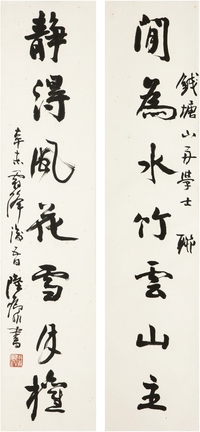 閒為水竹雲山主
錢塘山舟學士聯
靜得風花雪月權
辛未霜降後三日陸康書